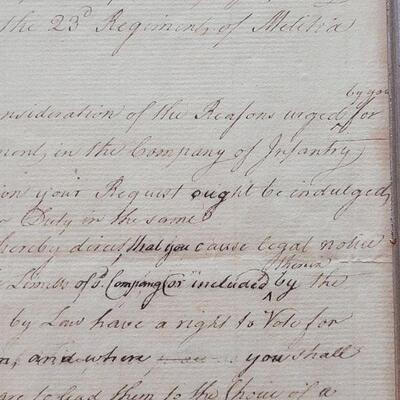 the 23d Regiment, of Melitia
by you
nsideration of the Reasons urged for
ment, in the Company of Infantry
ion your Request ought be indulged,
Duty in the same
hereby direct, that you cause legal notice
therein
Limits of sd. Company (or included by the
by Law have a right to Vote for
and where you shall
are to lead them to the Choice of a